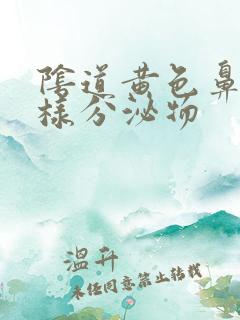 陰道黄色鼻
樣分泌物
溫升
未经同意禁止转载